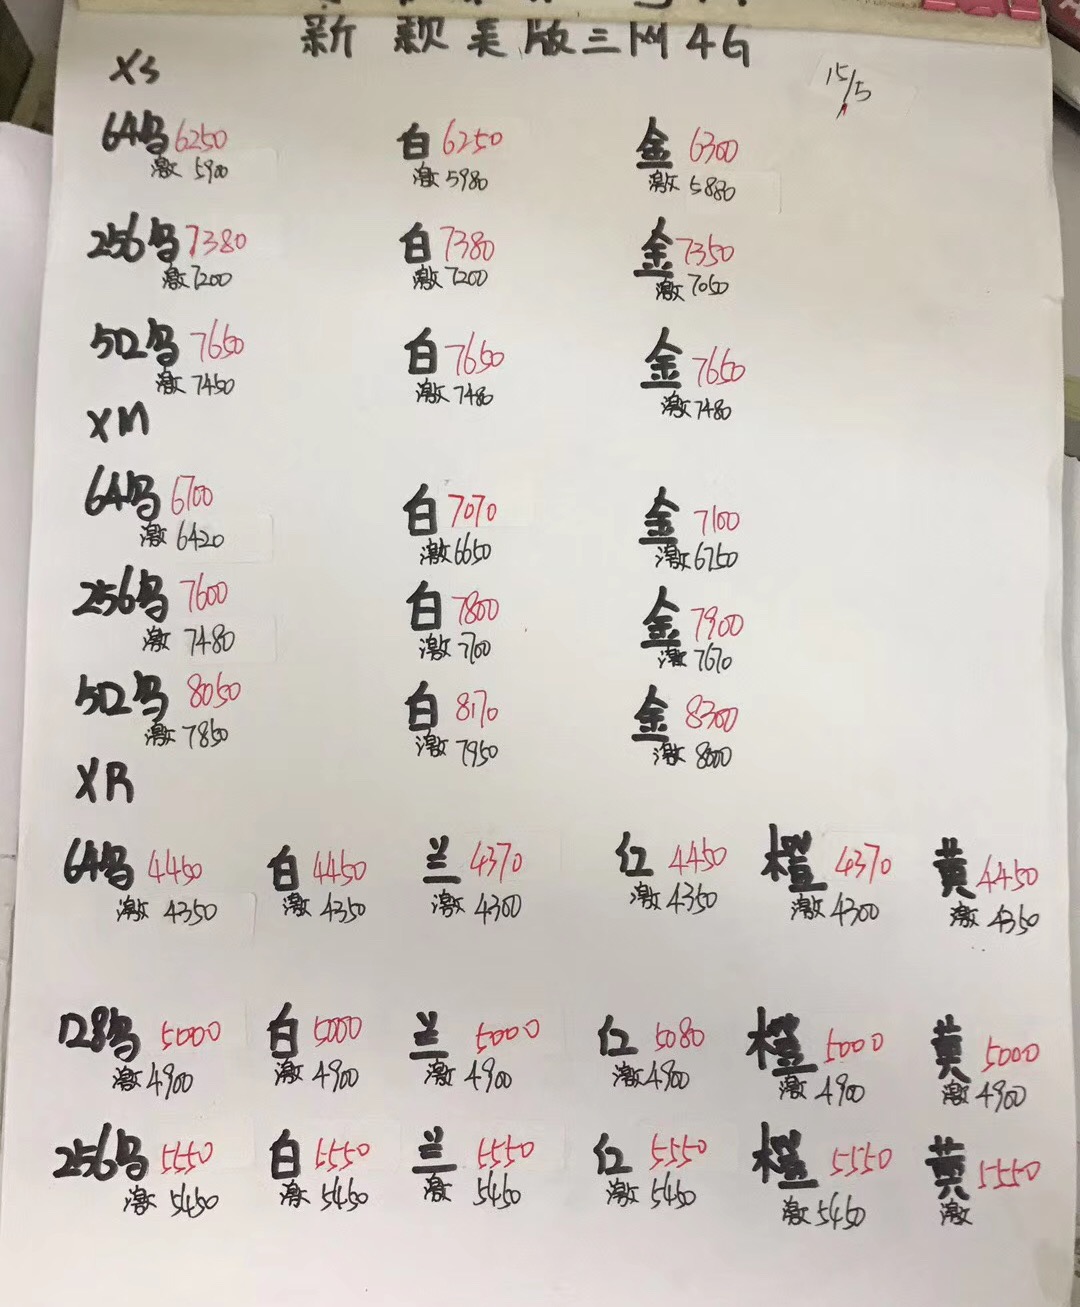 新款美版三网4G
15/5
XS
64乌 6250 白 6250 金 6300
激 5900 激 5980 激 5880
256乌 7380 白 7380 金 7350
激 7200 激 7200 激 7050
512乌 7650 白 7650 金 7650
激 7450 激 7480 激 7480
XM
64乌 6700 白 7070 金 7100
激 6420 激 6650 激 6750
256乌 7600 白 7800 金 7900
激 7480 激 7700 激 7670
512乌 8050 白 8170 金 8300
激 7850 激 7950 激 8000
XR
64乌 4450 白 4450 兰 4370 红 4450 橙 4370 黄 4450
激 4350 激 4350 激 4300 激 4350 激 4300 激 4350
128乌 5000 白 5000 兰 5000 红 5080 橙 5000 黄 5000
激 4900 激 4900 激 4900 激 4900 激 4900 激 4900
256乌 5550 白 5550 兰 5550 红 5550 橙 5550 黄 5550
激 5450 激 5450 激 5450 激 5450 激 5450 激